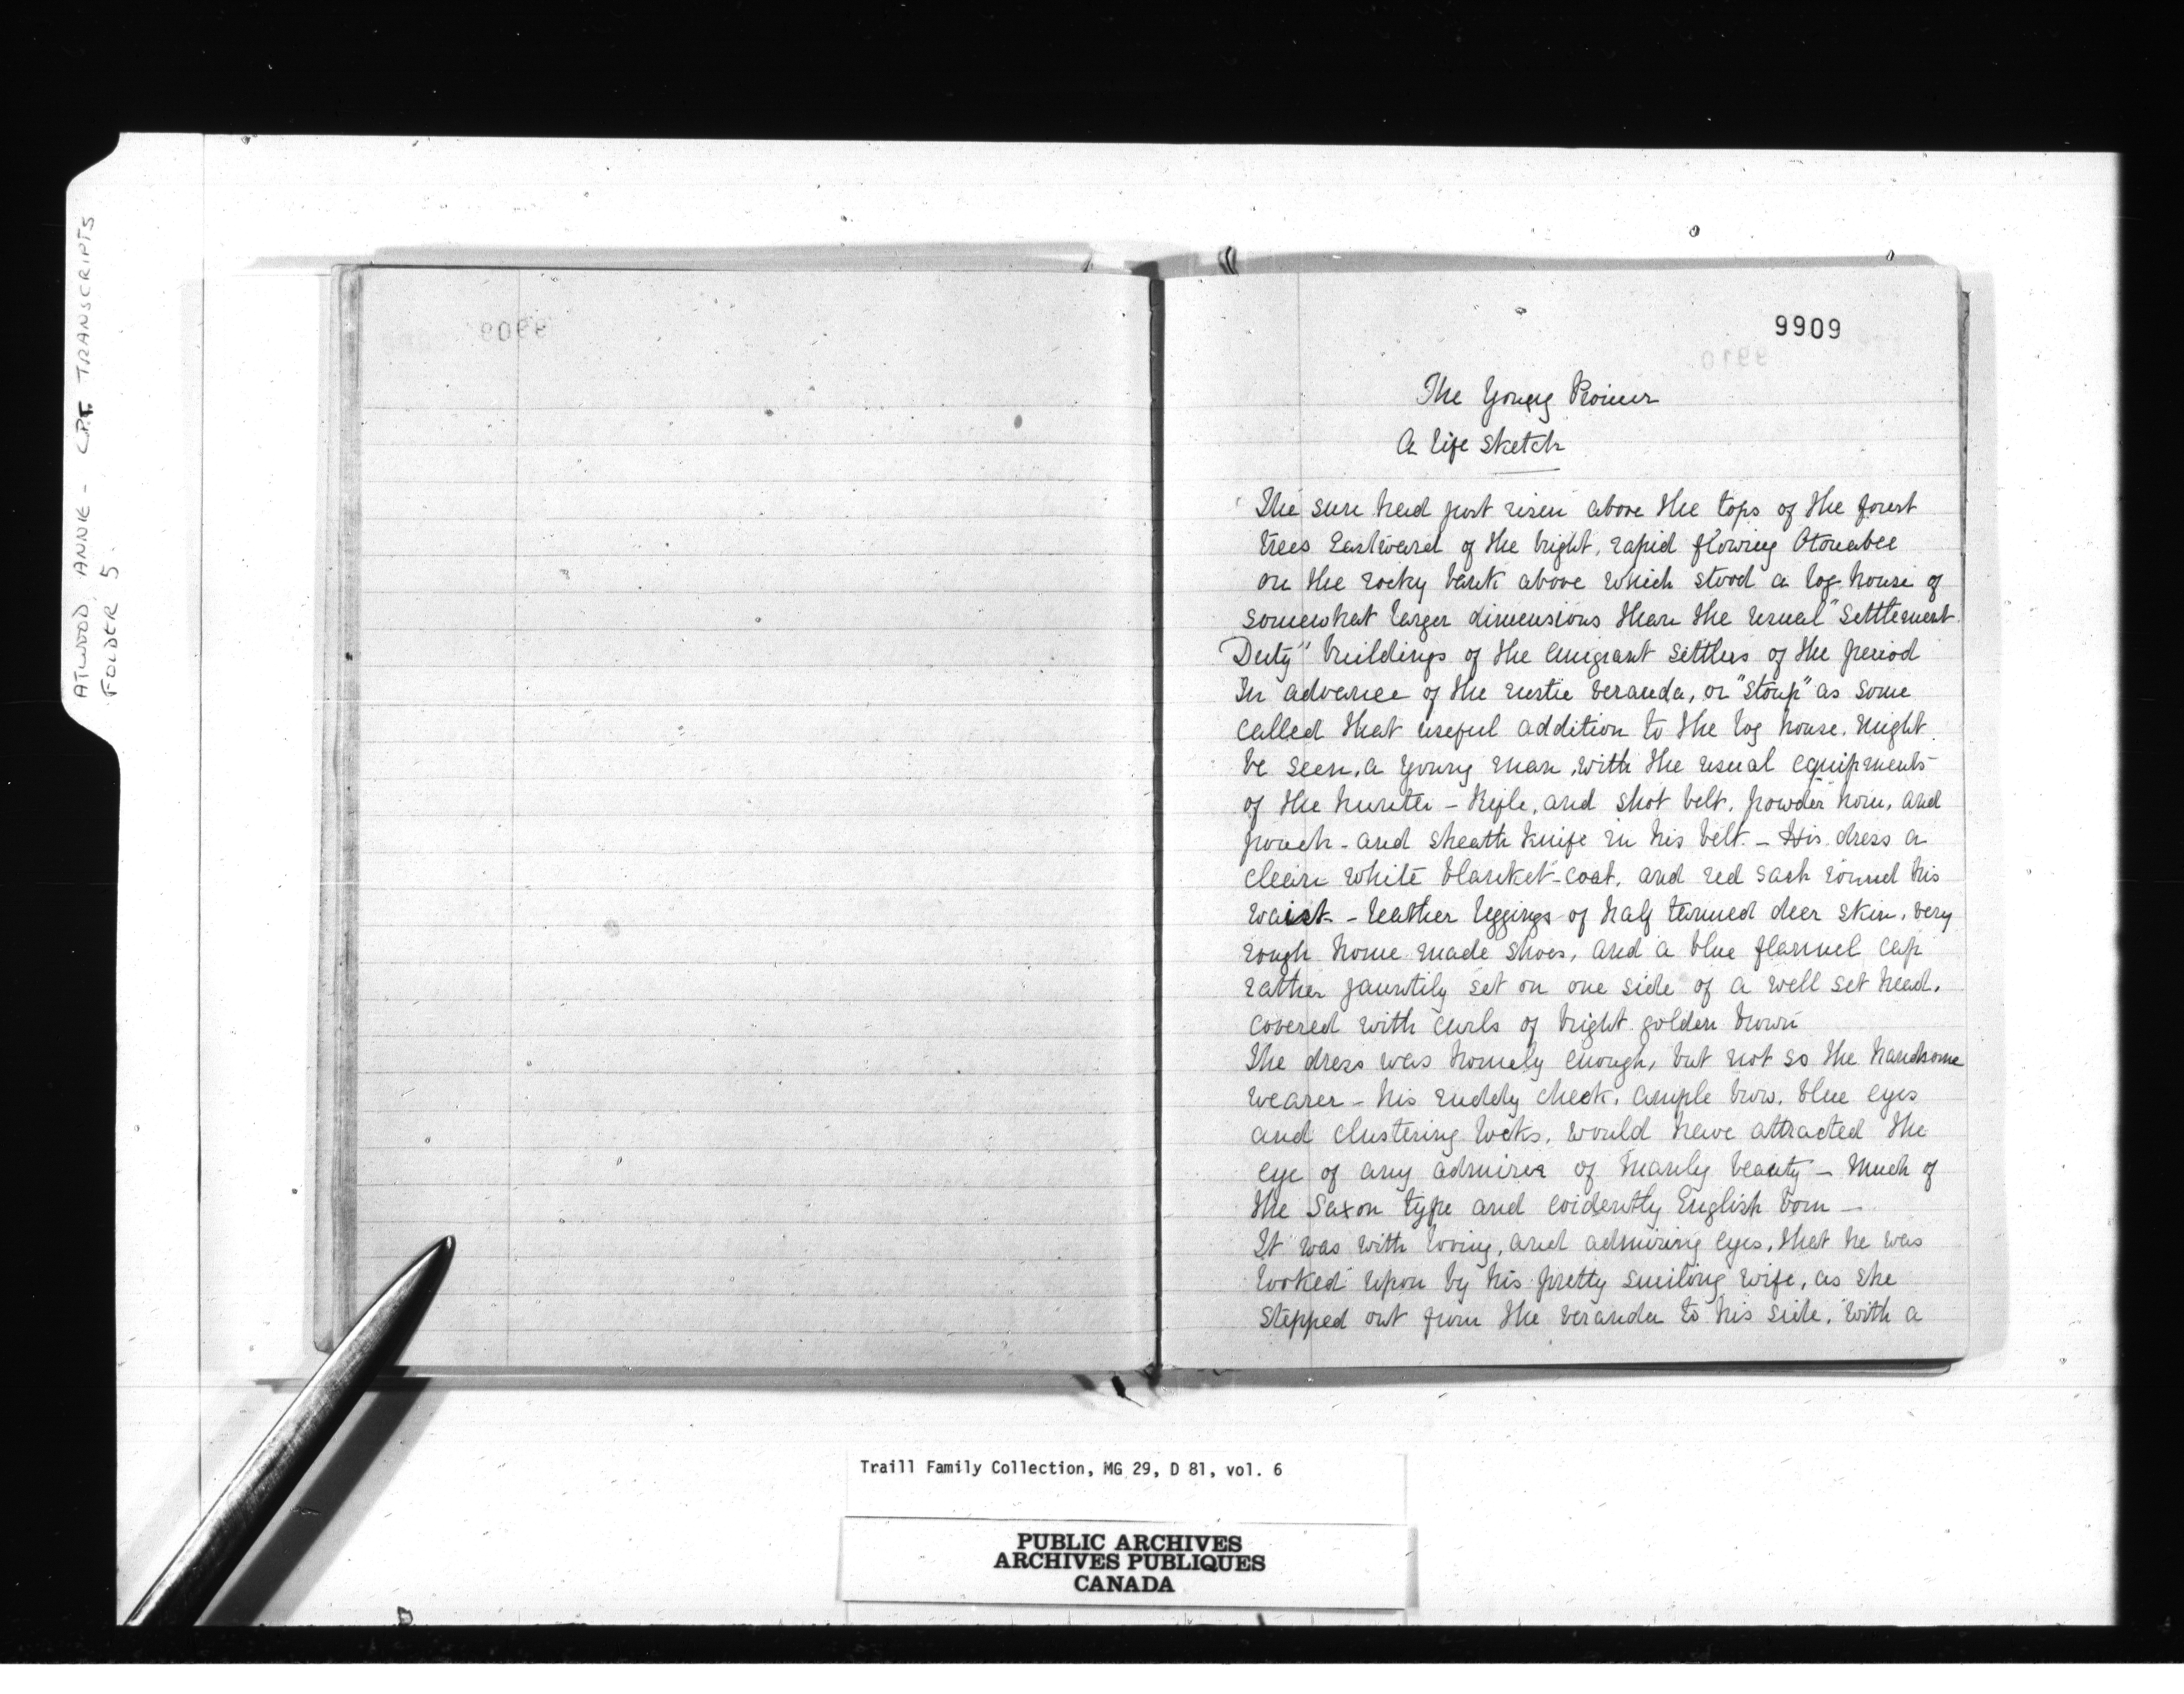 ATWOOD, ANNIE - C.P.T. TRANSCRIPTS
FOLDER 5.
9909
The Young Pioneer
A life sketch
The sun had just risen above the tops of the forest
trees Eastward of the bright, rapid flowing Otonabee
on the rocky bank above which stood a log house of
somewhat larger dimensions than the usual "Settlement
Duty" buildings of the emigrant settlers of the period
In advance of the rustic veranda, or "stoup" as some
called that useful addition to the log house. might
be seen, a young man, with the usual equipments
of the hunter - Rifle, and shot belt, powder horn, and
pouch - and sheath knife in his belt. - His dress a
clean white blanket-coat, and red sash round his
waist - leather leggings of half tanned deer skin, very
rough home made shoes, and a blue flannel cap
rather jauntily set on one side of a well set head,
covered with curls of bright golden brown
The dress was homely enough, but not so the handsome
wearer - his ruddy cheek, ample brow, blue eyes
and clustering locks, would have attracted the
eye of any admirer of manly beauty - Much of
the Saxon type and evidently English born -
It was with loving, and admiring eyes, that he was
looked upon by his pretty smiling wife, as she
stepped out from the veranda to his side, with a
Traill Family Collection, MG 29, D 81, vol. 6
PUBLIC ARCHIVES
ARCHIVES PUBLIQUES
CANADA